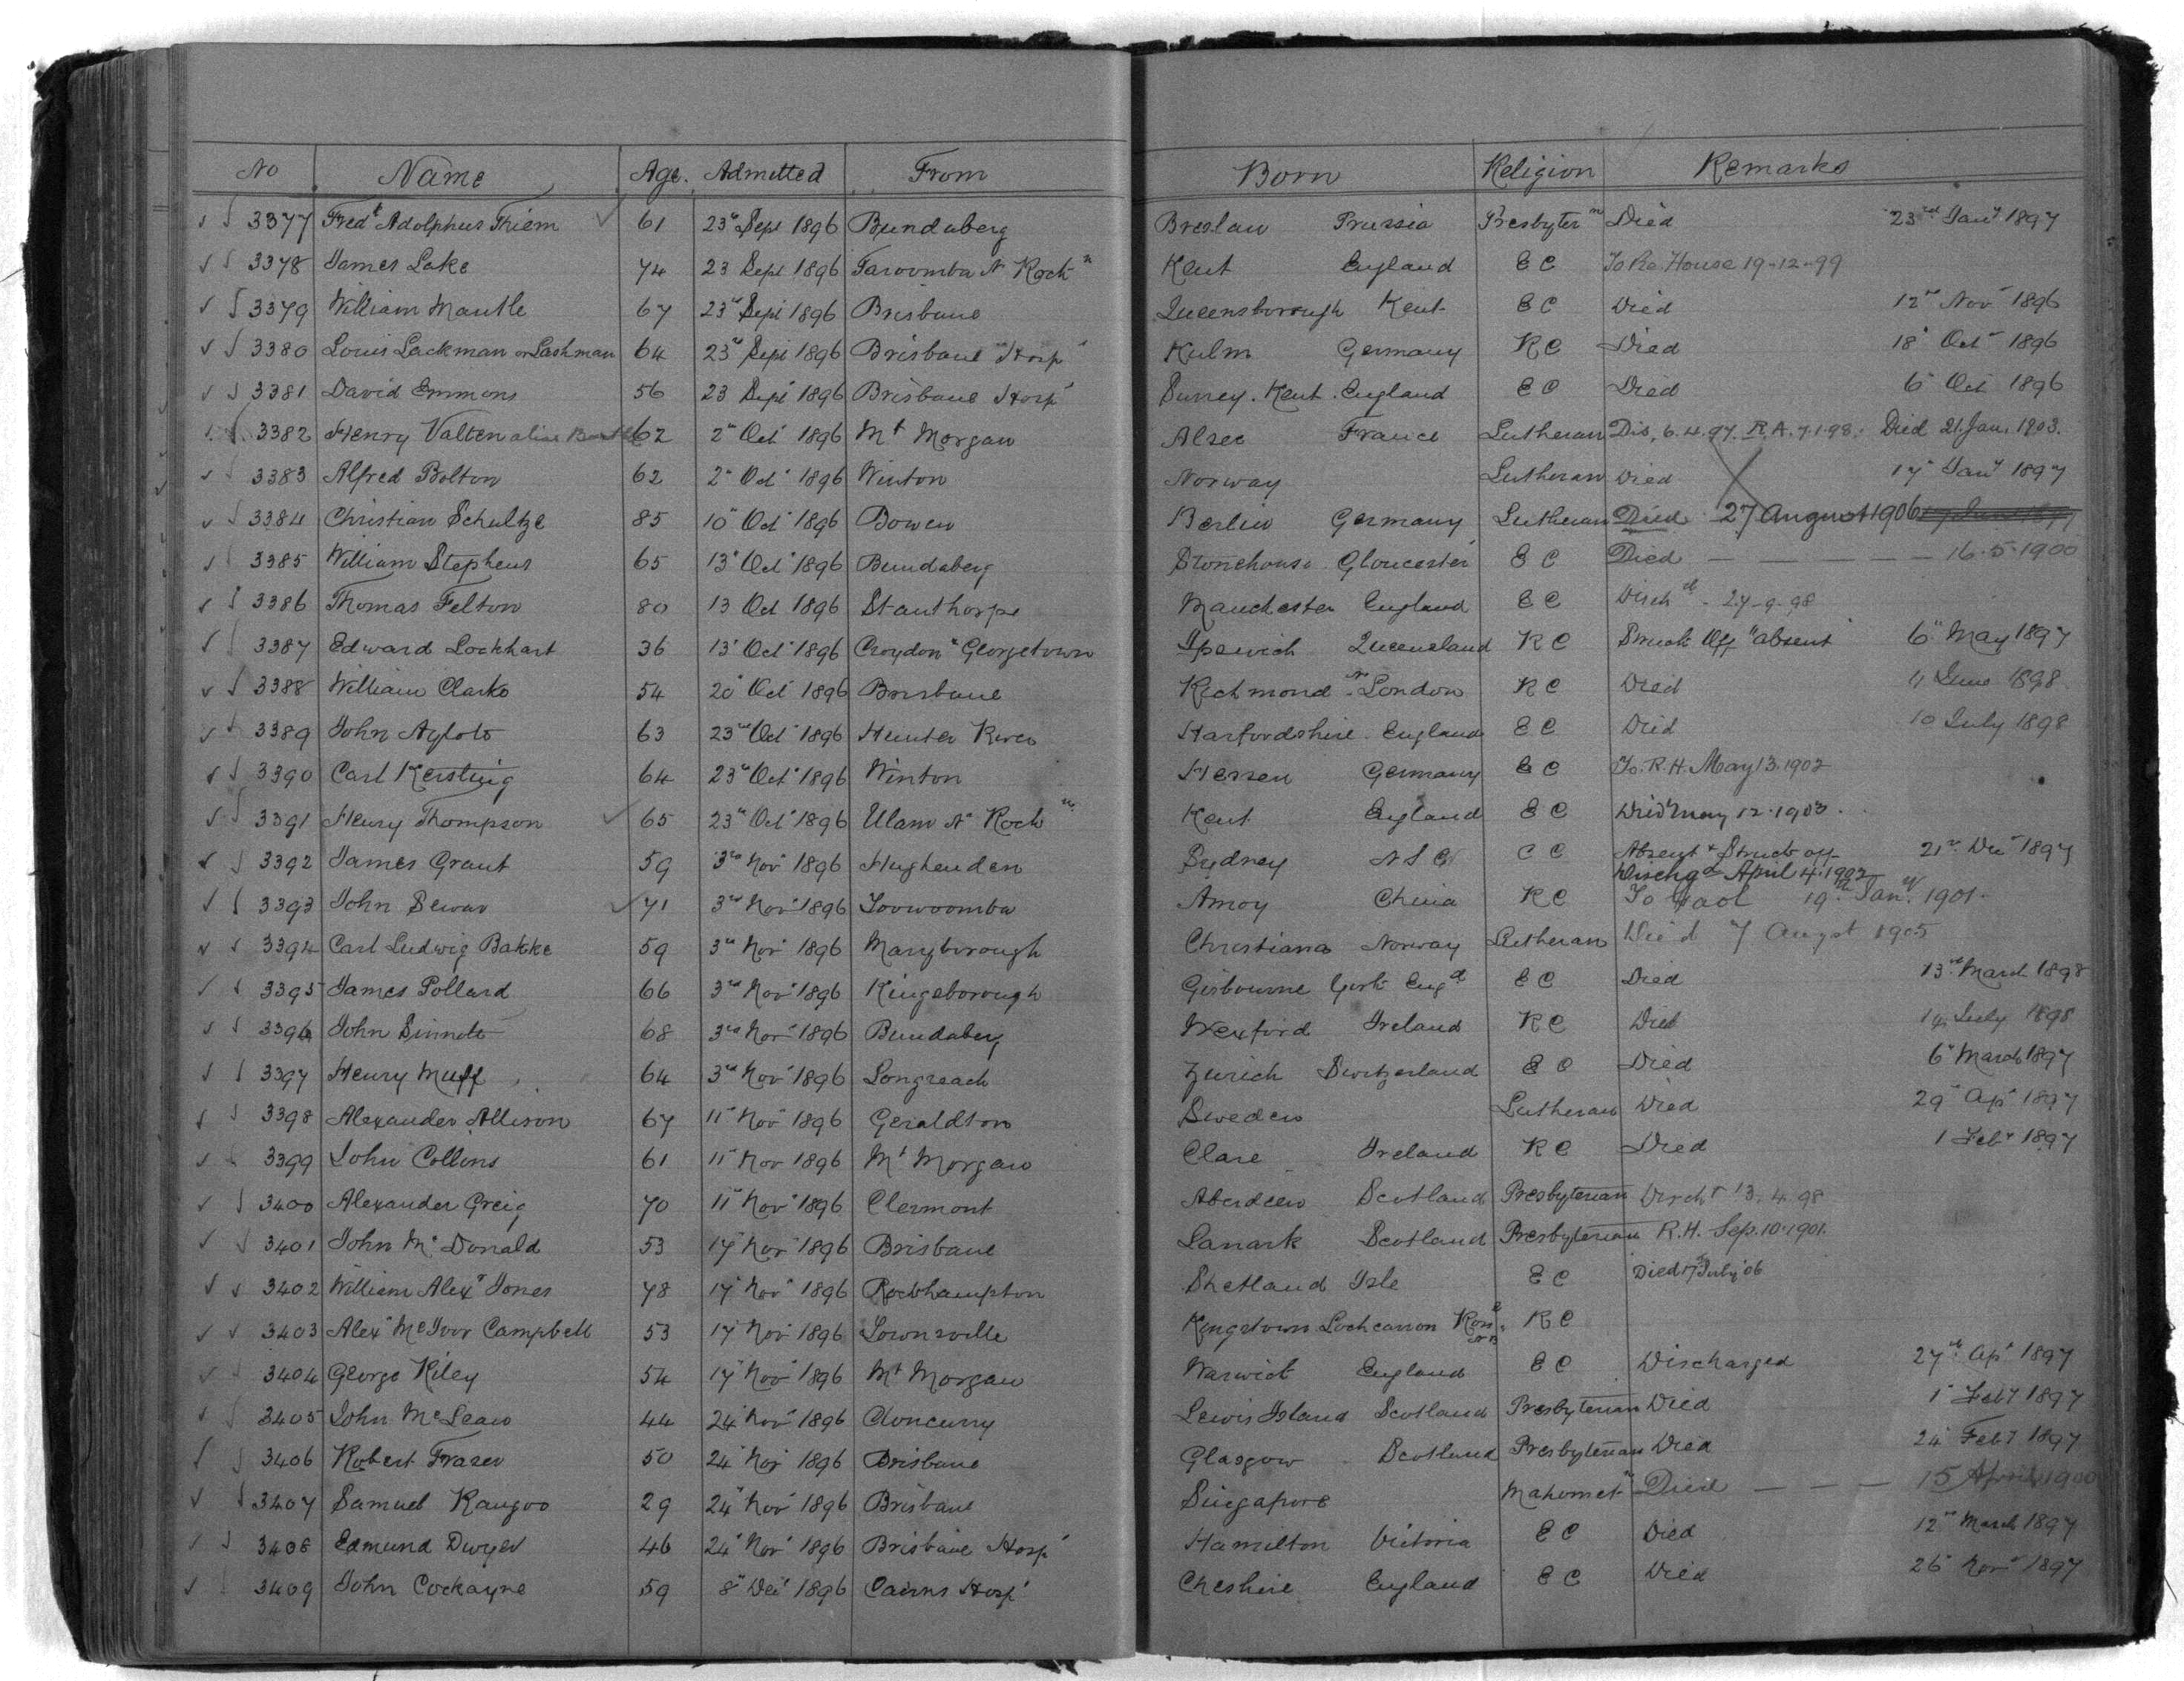 No Name Age. Admitted From Born Religion Remarks
3377 Fredk Adolphus Thiem 61 23" Sept 1896 Bundaberg Breslau Prussia Presbytern Died 23rd Jany 1897
3378 James Lake 74 23 Sept 1896 Taroomba N Rockn Kent England E C To Re. House 19-12-99
3379 William Mantle 67 23" Sept 1896 Brisbane Queensborough Kent E C Died 12" Nov 1896
3380 Louis Lackman or Lashman 64 23" Sept 1896 Brisbane Hosp Kulm Germany R C Died 18" Oct 1896
3381 David Emmons 56 23 Sept 1896 Brisbane Hosp Surrey. Kent. England E C Died 6 Oct 1896
3382 Henry Valten alias 62 2" Oct 1896 Mt Morgan Alsec France Lutheran Dis, 6.4.97. R.A. 7.1.98. Died 21. Jan. 1903.
3383 Alfred Bolton 62 2" Oct 1896 Winton Norway Lutheran Died 17 Jany 1897
3384 Christian Schultze 85 10" Oct 1896 Bowen Berlin Germany Lutheran Died 27 August 1906
3385 William Stephens 65 13" Oct 1896 Bundaberg Stonehouse Gloucester E C Died — — — — 16.5.1900
3386 Thomas Felton 80 13 Oct 1896 Stanthorpe Manchester England E C Disch d - 27-9-98
3387 Edward Lockhart 36 13" Oct 1896 Croydon "Georgetown Ipswich Queensland R C Struck Off "absent" 6" May 1897
3388 William Clarke 54 20" Oct 1896 Brisbane Richmond Nr London R C Died 11 June 1898
3389 John Aylott 63 23" Oct 1896 Hunter River Harfordshire. England E C Died 10 July 1898
3390 Carl Kersting 64 23" Oct 1896 Winton Hessen Germany E C To. R.H. May 13. 1902
3391 Henry Thompson 65 23" Oct 1896 Ulam Nr Rockn Kent England E C Died May 12.1903.
3392 James Grant 59 3rd Nov 1896 Hughenden Sydney N S W C C Absent & Struck off 21" Dec 1897
Dischgd April 4.1902
3393 John Sewar 71 3rd Nov 1896 Toowoomba Amoy China R C To Gaol 19th Jany. 1901.
3394 Carl Ludwig Bakke 59 3rd Nov 1896 Maryborough Christiana Norway Lutheran Died 7 Augst 1905
3395 James Pollard 66 3rd Nov 1896 Kingsborough Gisbourne York Engd E C Died 13th March 1898
3396 John Sinnott 68 3rd Nov 1896 Bundaberg Wexford Ireland R C Died July 1898
3397 Henry Muff 64 3rd Nov 1896 Longreach Zurich Switzerland E C Died 6" March 1897
3398 Alexander Allison 67 11" Nov 1896 Geraldton Sweden Lutheran Died 29" Apl 1897
3399 John Collins 61 11" Nov 1896 Mt Morgan Clare Ireland R C Died 1 Feby 1897
3400 Alexander Greig 70 11" Nov 1896 Clermont Aberdeen Scotland Presbyterian Disch 13.4.98
3401 John McDonald 53 17" Nov 1896 Brisbane Lanark Scotland Presbyterian R.H. Sep. 10.1901.
3402 William Alexr Jones 78 17" Nov 1896 Rockhampton Shetland Isle E C Died 17 July 06
3403 Alex McIvor Campbell 53 17 Nov 1896 Townsville Kingstown Lochcarron Ross N.B R C
3404 George Kiley 54 17" Nov 1896 Mt Morgan Warwick England E C Discharged 27th Apl 1897
3405 John McLean 44 24 Nov 1896 Cloncurry Lewis Island Scotland Presbyterian Died 1" Feby 1897
3406 Robert Fraser 50 24 Nov 1896 Brisbane Glasgow Scotland Presbyterian Died 24 Feby 1897
3407 Samuel Kangoo 29 24" Nov 1896 Brisbane Singapore Mahometn Died — — — 15 April 1900
3408 Edmund Dwyer 46 24" Nov 1896 Brisbane Hosp Hamilton Victoria E C Died 12" March 1897
3409 John Cockayne 59 8" Dec 1896 Cairns Hosp Cheshire England E C Died 26 Nov 1897